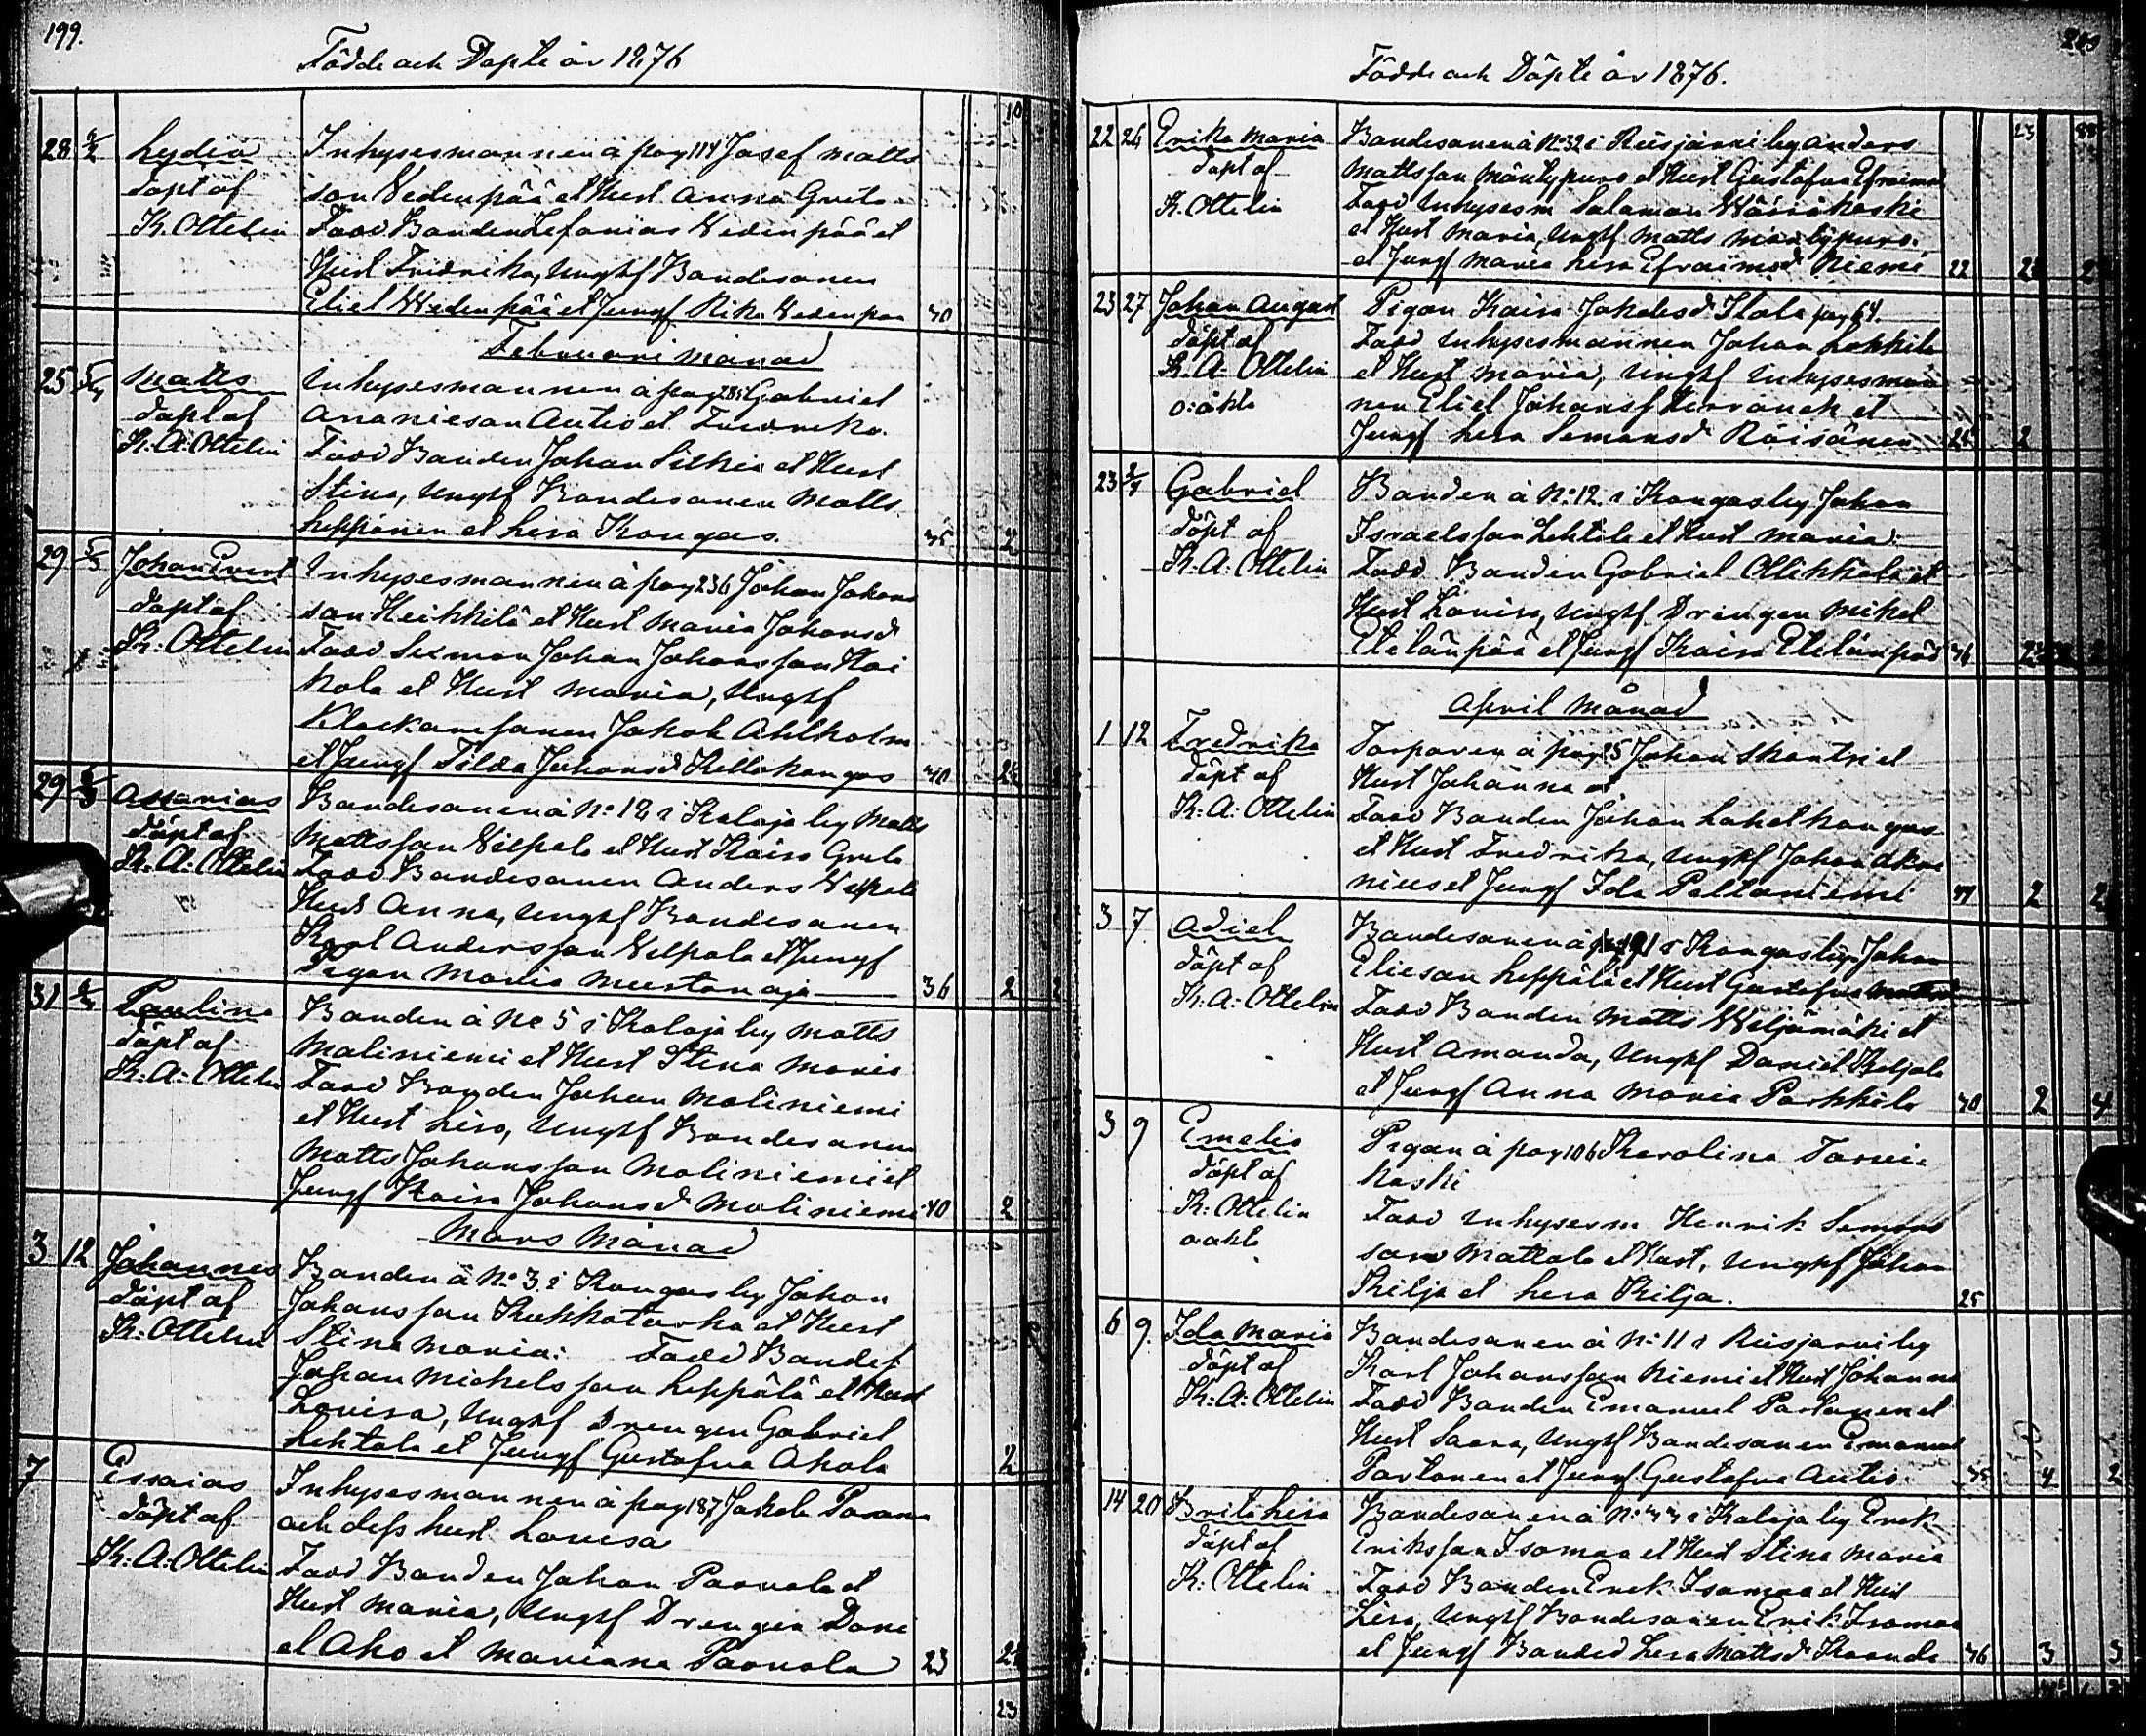 199.
Födde och Döpte år 1876
10
28 2/2 Lydia
döpt af
K. Ottelin
Inhysesmannen å pag 114 Josef Matts
son Vedenpää et Hust Anna Greta
Fadd Bonden Zefanias Vedenpää et
Hust Fredrika, Ungkf Bondesonen
Eliel Wedenpää et Jungf Rika Vedenpää 40
Februari månad
25 Matts
döpt af
K. A. Ottelin
Inhysesmannen å pag 285 Gabriel
Ananieson Autio et Fredrika.
Fadd Bonden Johan Silkia et Hust
Stina, Ungkf Bondesonen Matts
Leppänen et Lisa Kangas. 35 2
29 5/3 Johan Evert
döpt af
K. Ottelin
Inhysesmannen å pag 236 Johan Johans
son Heikkilä et Hust Maria Johansd
Fadd Sexman Johan Johansson
kola et Hust Maria, Ungkf
Klockaresonen Jakob Ahlholm
et Jungf Tilda Johansd Kellokangas 40
29 Assarias
döpt af
K. A. Ottelin
Bondesonen å No: 12 i Kalaja by Matts
Mattsson Vilpola et Hust Kaisa Greta
Fadd Bondesonen Anders Vilpola
Hust Anna, Ungkf Bondesonen
Karl Andersson Vilpola et Jungf
Pigan Maria Mustanoja 36 2
31 Paulina
döpt af
K. A. Ottelin
Bonden å No 5 i Kalaja by Matts
Maliniemi et Hust Stina Maria
Fadd Bonden Johan Maliniemi
et Hust Lisa, Ungkf Bondesonen
Matts Johansson Maliniemi et
Jungf Kaisa Johansd Maliniemi 40 2
Mars Månad
3 12 Johannes
döpt af
K. Ottelin
Bonden å No 3 i Kangas by Johan
Johansson Kukkotarha et Hust
Stina Maria: Fadd Bonden
Johan Michelsson Leppälä et Hust
Lovisa, Ungkf Drengen Gabriel
Lehtola et Jungf Gustafva Ahola 2
7 Essaias
döpt af
K. A. Ottelin
Inhysesmannen å pag 187 Jakob
och dess hust Lovisa
Fadd Bonden Johan Paavola et
Hust Maria, Ungkf Drengen Dani
el Aho et Mariana Paavola 23
23
Födde och Döpte år 1876.
22 26 Erika Maria
döpt af
K. Ottelin
Bondesonen å No 32 i Reisjärvi by Anders
Mattsson Mäntypuro et Hust Gustafva Efraimsd
Fadd Inhysesm Salamon Wääräkoski
et Hust Maria, Ungkf Matts Mäntypuro
et Jungf Maria Lisa Efraimsd Niemi 22
23 27 Johan August
döpt af
K. A. Ottelin
o: äkta
Pigan Kaisa Jakobsd Ilola pag 64.
Fadd Inhysesmannen Johan
et Hust Maria, Ungkf Inhysesman
nen Eliel Johansson et
Jungf Lisa Semonsd Räisänen 2
23 Gabriel
döpt af
K. A. Ottelin
Bonden å No: 12 i Kangas by Johan
Israelsson Lehtile et Hust Maria:
Fadd Bonden Gabriel Ollikkala et
Hust Lovisa, Ungkf Drengen Mikel
Etelänpää et Jungf Kaisa Etelänpää 36
April Månad
1 12 Fredrika
döpt af
K. A. Ottelin
Torparen å pag 25 Johan et
Hust Johanna
Fadd Bonden Johan Lahetkangas
et Hust Fredrika, Ungkf Johan
et Jungf Ida Peltoniemi 2
3 7. Adiel
döpt af
K. A. Ottelin
Bondesonen å i Kangas by Johan
Elieson Leppälä et Hust Gustafva
Fadd Bonden Matts Weljämäki et
Hust Amanda, Ungkf Daniel
et Jungf Anna Maria Parkkila 40 2 4
3 9 Emelia
döpt af
K. Ottelin
oäkta
Pigan å pag 106 Karolina
koski
Fadd Inhysesm Henrik Semons
son Mattala et Hust, Ungkf Johan
Kilja et Lisa Kilja. 25
6 9. Ida Maria
döpt af
K. A. Ottelin
Bondesonen å No 11 i Reisjärvi by
Karl Johansson Niemi et Hust Johanna
Fadd Bonden Emanuel Partanen et
Hust Saara, Ungkf Bondesonen Emanuel
Partanen et Jungf Gustafva Autio 35 4 2
14 20 Brita Lisa
döpt af
K. Ottelin
Bondesonen å No: i Kalaja by Erik
Eriksson Isomaa et Hust Stina Maria
Fadd Bonden Erik Isomaa et Hust
Lisa, Ungkf Bondesonen Erik Isomaa
et Jungf Bonded Lisa Mattsd 36 3 3